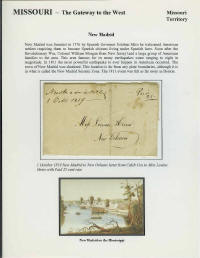 MISSOURI - The Gateway to the West
Missouri
Territory
New Madrid
New Madrid was founded in 1776 by Spanish Governor Esteban Miro he welcomed American
settlers requiring them to become Spanish citizens living under Spanish laws. Soon after the
Revolutionary War, Colonel William Morgan from New Jersey lead a large group of American
families to the area. This area famous for its many earthquakes some ranging to eight in
magnitude. In 1811 the most powerful earthquake to ever happen in American occurred. The
town of New Madrid was destroyed. This location is far from any plate boundaries, although it is
in what is called the New Madrid Seismic Zone. The 1811 event was felt as far away as Boston.
1 Oct 1819
Miss Louisa
New Orleans
1 October 1819 New Madrid to New Orleans letter from Caleb Cox to Miss Louisa
with Paid 25 cent rate
New Madrid on the Mississippi